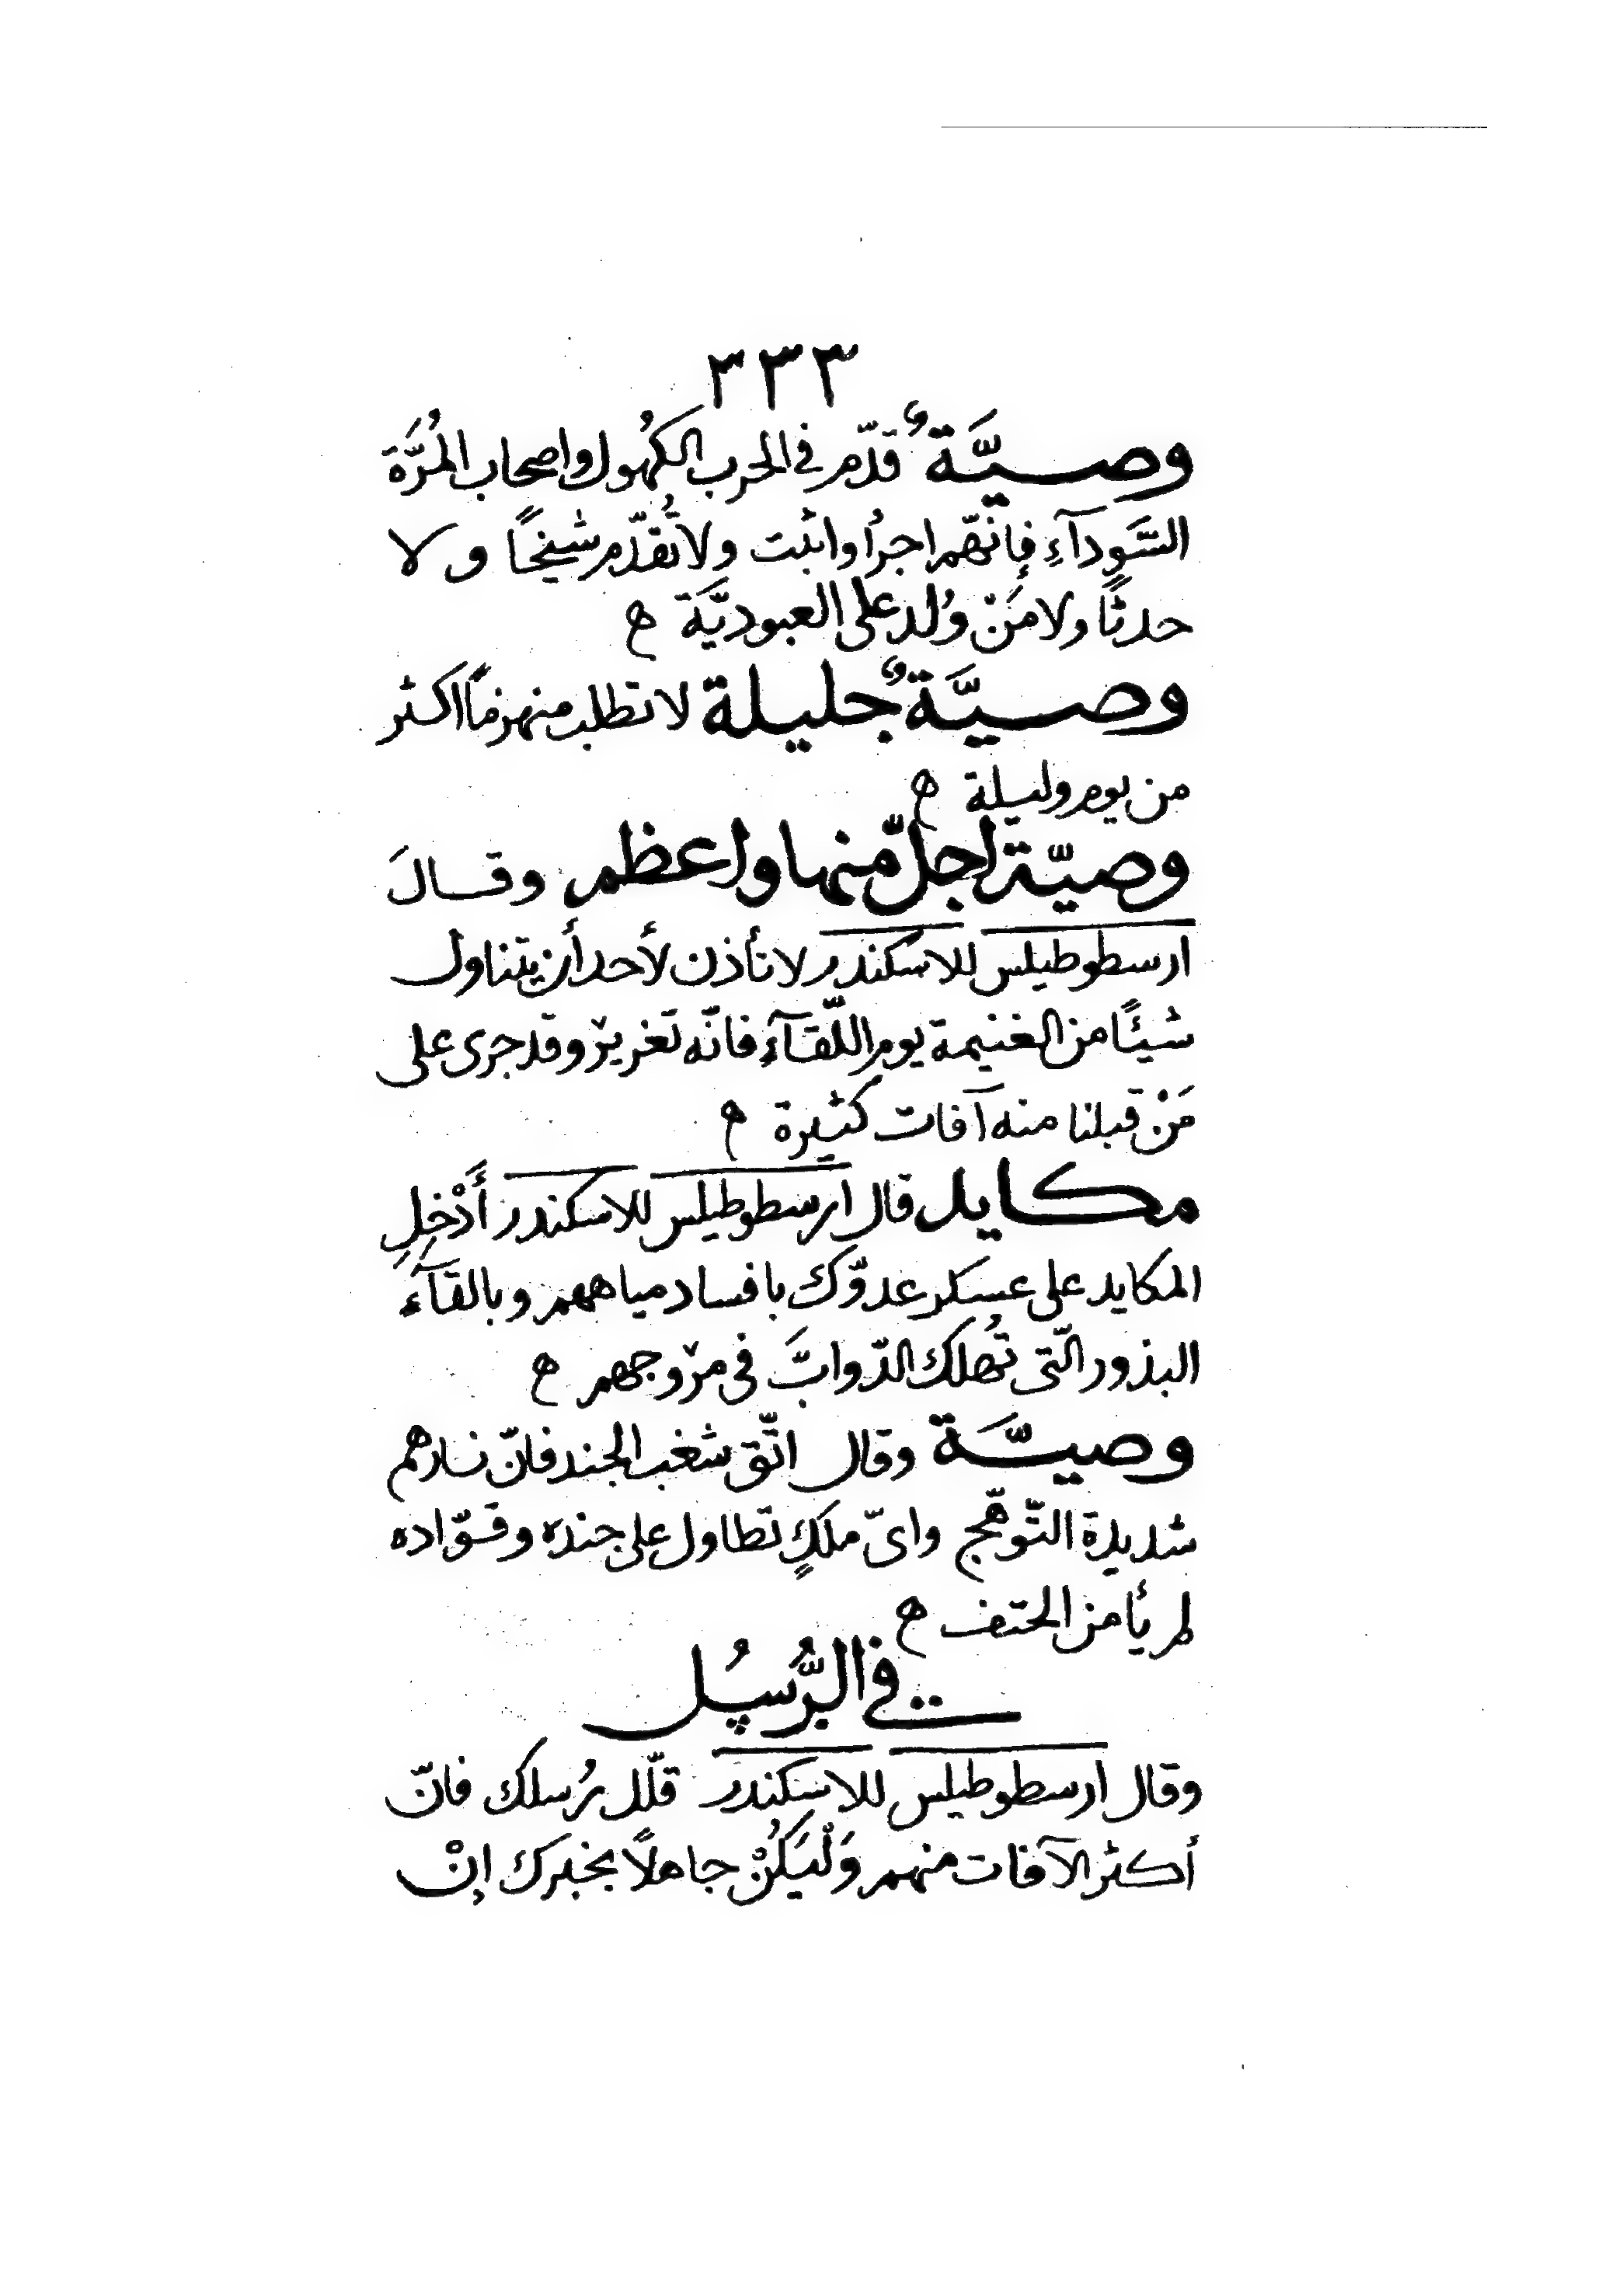 ٣٣٣
وصيَّةٌ قدّم في الحرب الكهُول واصحاب المُرَّةَ
السَّودآءِ فإنّهم اجرُا واثبت ولا تُقدّم شيخًا ولا
حدثًا ولا مَنْ وُلد على العبوديَّة ه
وصيَّةٌ جليلة لا تطلب منهزمًا اكثر
من يوم وليلة ه
وصيّة اجلّ منها واعظم وقالَ
ارسطوطيلس للاسكندر لا تأذن لأحد أن يتناول
شيئًا من الغنيمة يوم اللّقآء فانّه تغرير وقد جرى على
مَنْ قبلنا منه آفات كثيرة ه
مكايد قال ارسطوطيلس للاسكندر أَدْخِلِ
المكايد على عسكر عدوّك بافساد مياههم وبالقَآءَ
البذور الّتى تُهلك الدّوابَّ فى مرْوجهم ه
وصيَّة وقال اتّق شغب الجند فانّ نارهم
شديدة التّوهّج واىّ ملكٍ تطاول على جنده وقوّاده
لم يأمن الحتف ه
فى الرُّسُل
وقال ارسطوطيلس للاسكندر قلّل رُسلك فانّ
أكثر الآفات منهم وَلْيَكُنْ جاهلًا بخبرك إنْ